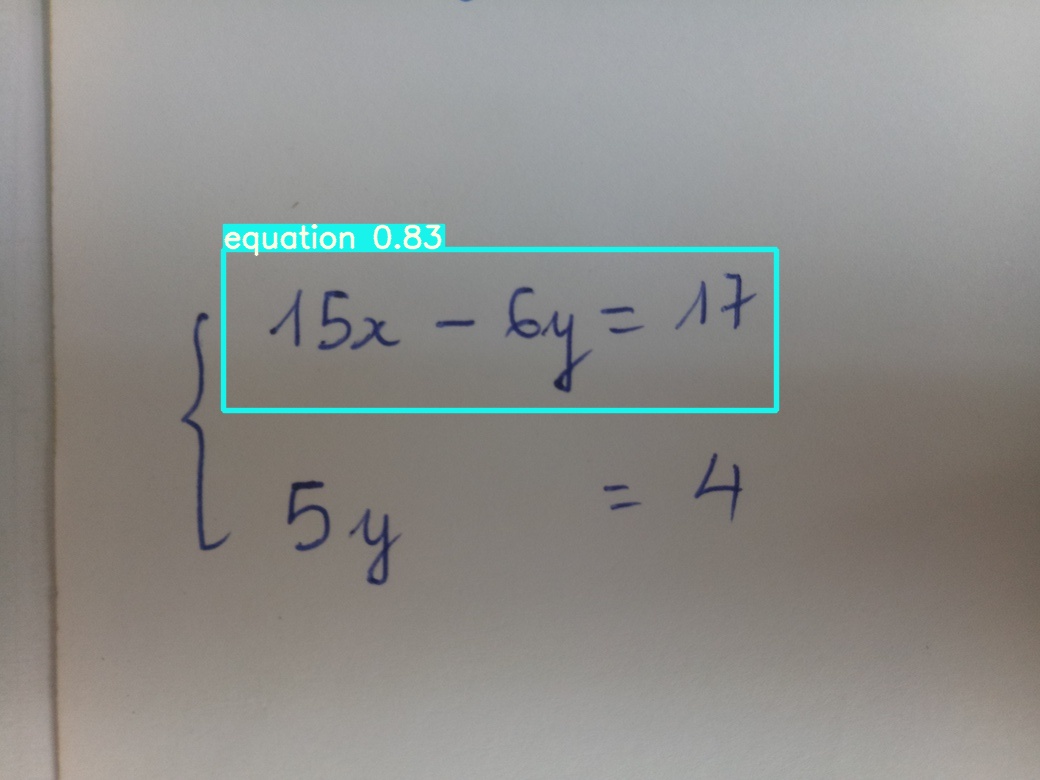 equation 0.83
15x - 6y = 17
5y = 4